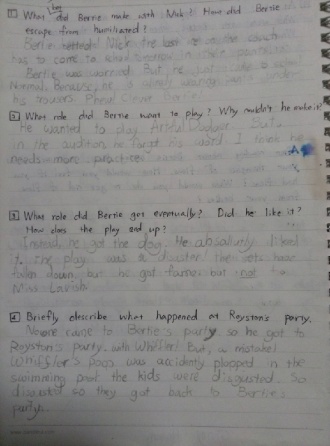 1 What bet did Bertie make with Nick? How did Bertie
escape from humiliated?
Bertie betted Nick the last to the
has to come to school
Bertie was worried. But he just
Normal. Because, he is already wearing
his trousers. Phew! Clever
2 What role did Bertie want to play? Why couldn't he make it?
He wanted to play Artful Dodger. But,
in the audition he forgot his word. I think he
needs more practice
3 What role did Bertie get eventually? Did he like it?
How does the play end up?
Instead, he got the dog. He absolutly liked
it. The play was a disister the sets have
fallen down, but he got fame but not to
Miss Lavish.
4 Briefly describe what happened at Royston's party.
No one came to Bertie's party so he got to
Royston's party. with Whiffler! But, a mistake!
Whiffler's poos was accidently plopped in the
swimming pool the kids were disgusted. So
disgusted so they got back to Bertie's
party.